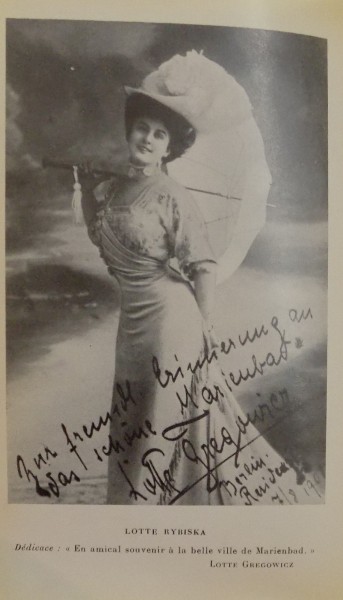 Zur freundl. Erinnerung an
das schöne Marienbad.
Lotte Gregowicz
Berlin.
LOTTE RYBISKA
Dédicace : « En amical souvenir à la belle ville de Marienbad. »
LOTTE GREGOWICZ